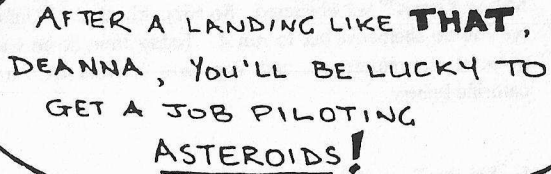 AFTER A LANDING LIKE THAT,
DEANNA, YOU'LL BE LUCKY TO
GET A JOB PILOTING
ASTEROIDS!